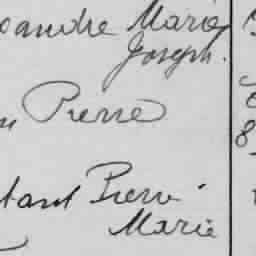 andre Marie
Joseph.
Pierre
tant Pierre
Marie